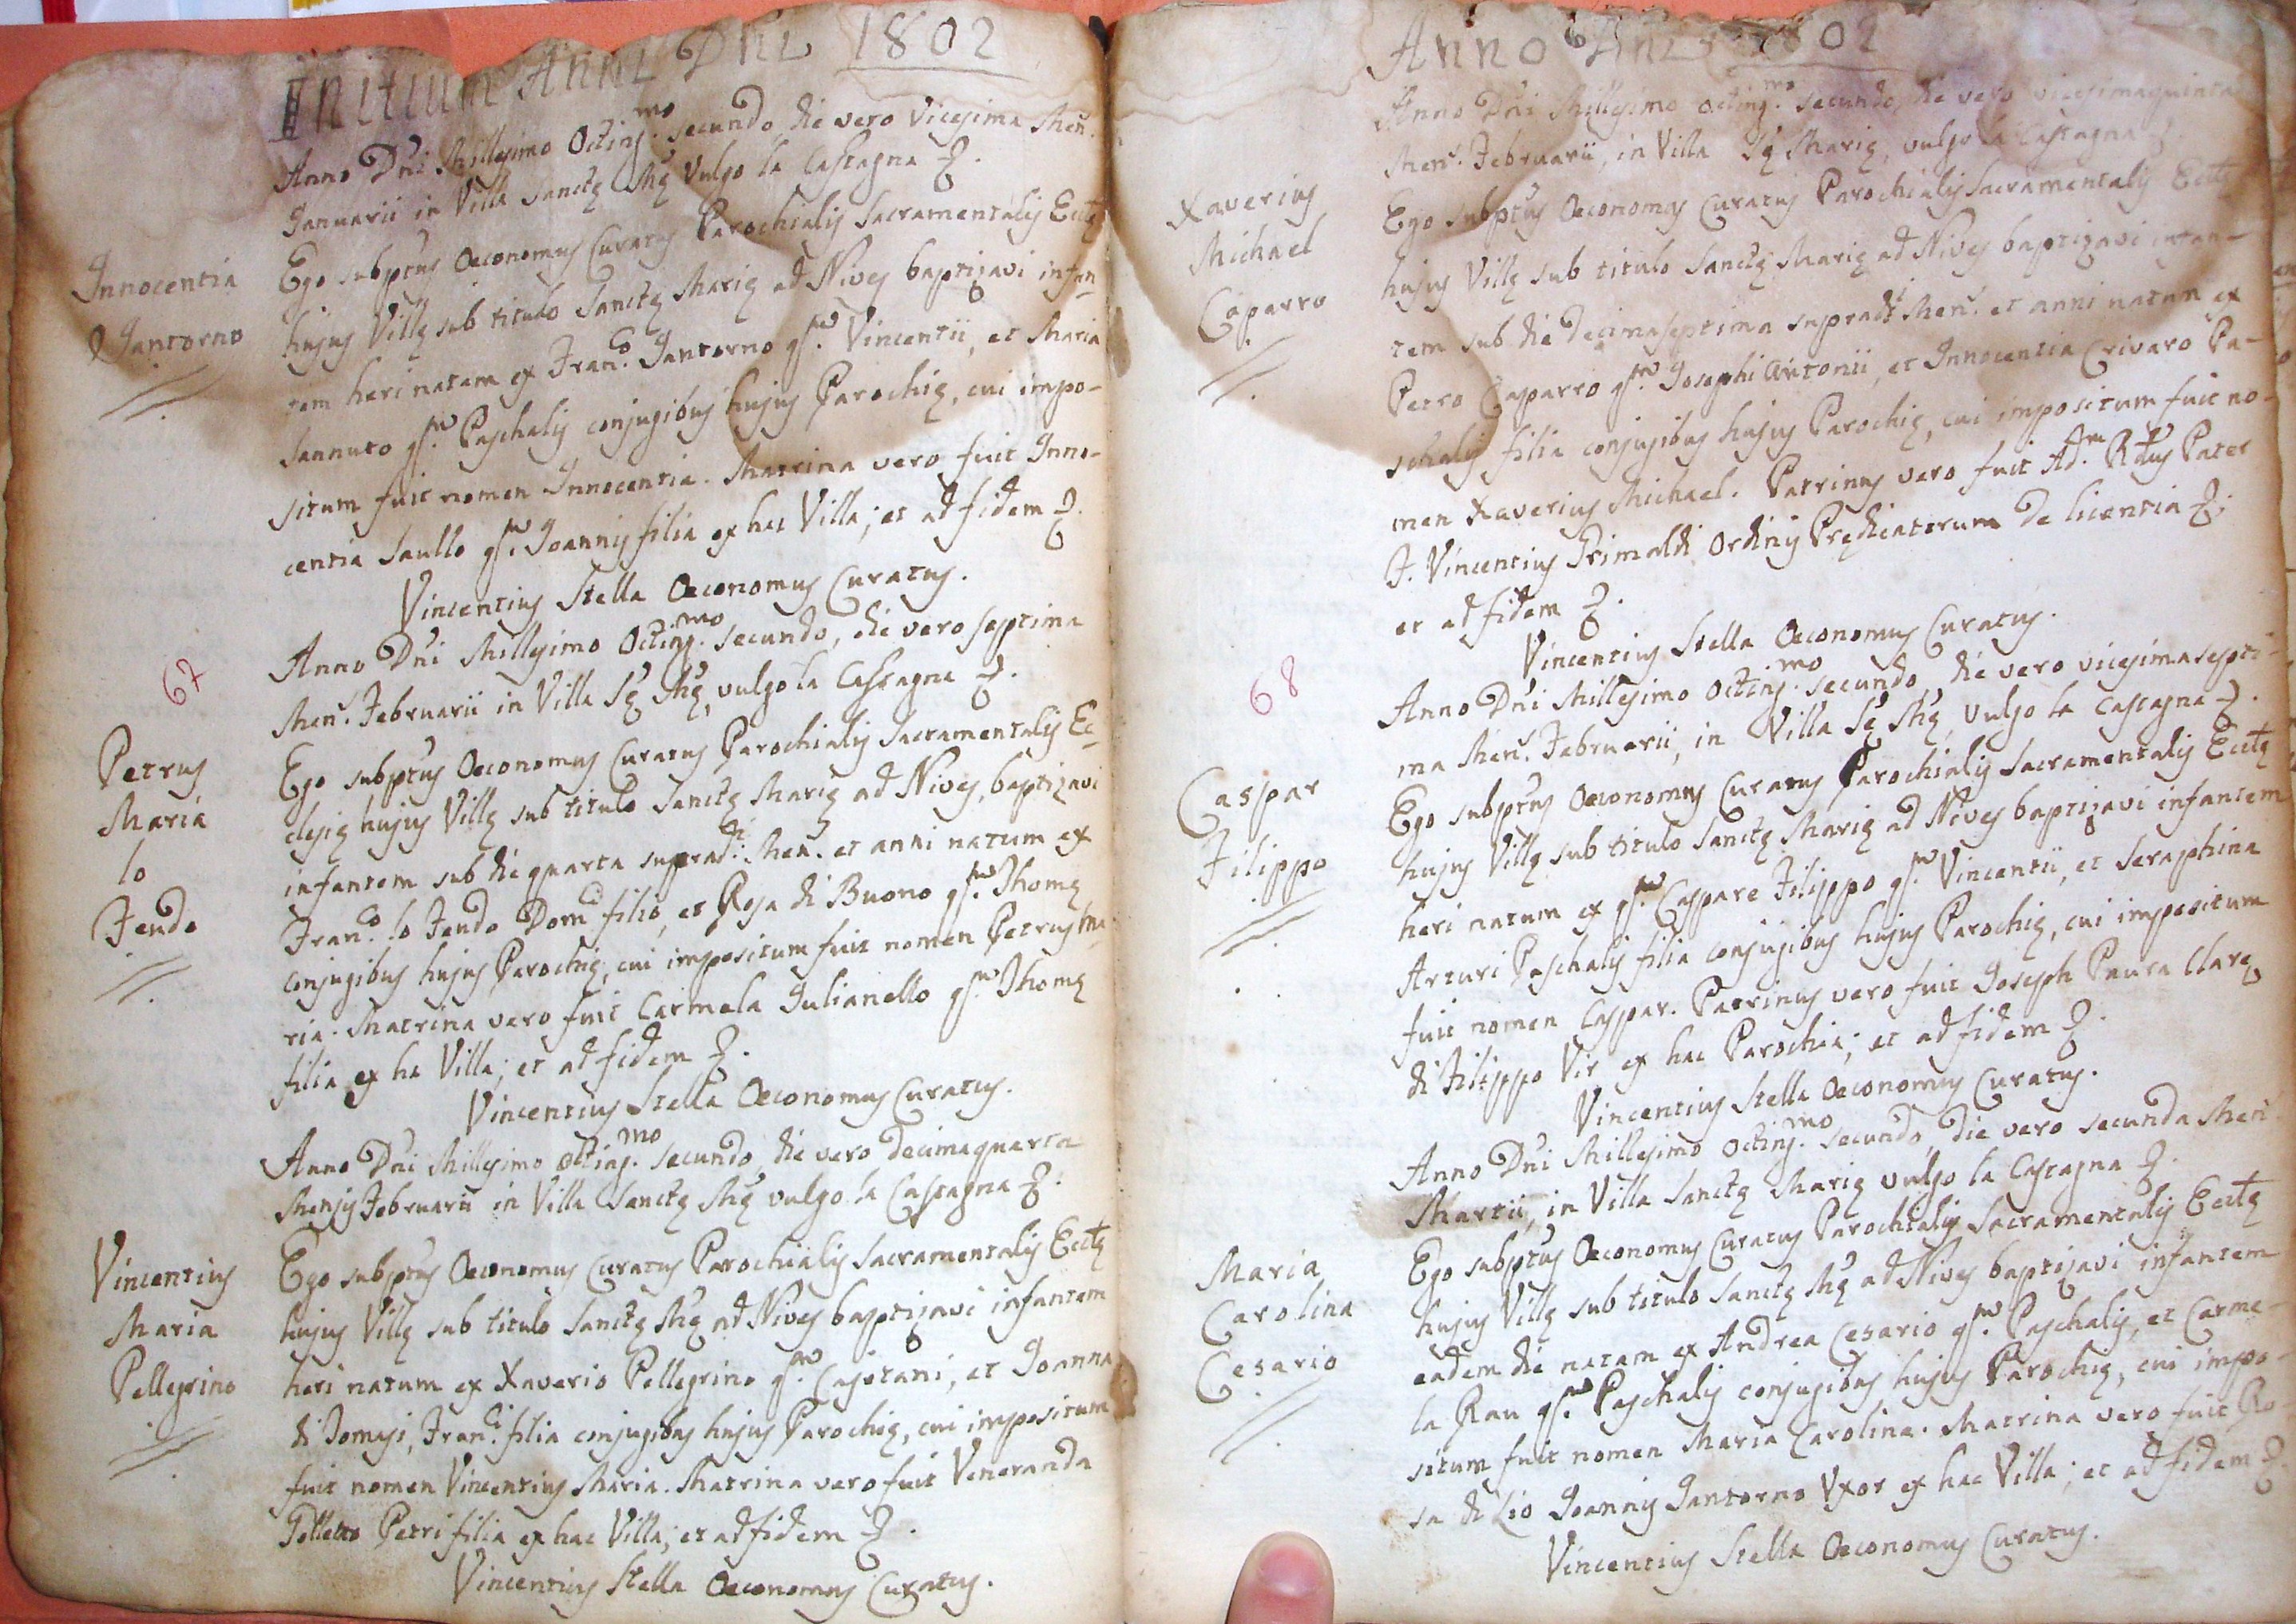 Initium Anni Dni 1802
Anno Dni Millesimo Octing.mo secundo, die vero Vicesima Men.
Januarii in Villa Sanctę Mę Vulgo la Castagna
Innocentia
Jantorno
Ego subptus Oeconomus Curatus Parochialis Sacramentalis Eccłę
hujus Villę sub titulo Sanctę Marię ad Nives baptizavi infan-
tem heri natam ex Fran.co Jantorno qm. Vincentii, et Maria
Sannuto qm. Paschalis conjugibus hujus Parochię, cui impo-
situm fuit nomen Innocentia. Matrina vero fuit Inno-
centia Saullo qm. Joannis filia ex hac Villa; et ad fidem
Vincentius Stella Oeconomus Curatus.
67
Anno Dni Millesimo Octing.mo secundo, die vero septima
Men. Februarii in Villa Sę Mę, vulgo la Castagna
Petrus
Maria
lo
Fendo
Ego subptus Oeconomus Curatus Parochialis Sacramentalis Ec-
clesię hujus Villę sub titulo Sanctę Marię ad Nives, baptizavi
infantem sub die quarta suprad.i Men. et anni natum ex
Fran.co lo Fendo Dom.ci filio, et Rosa di Buono qm. Thomę
conjugibus hujus Parochię, cui impositum fuit nomen Petrus Ma-
ria. Matrina vero fuit Carmela Julianello qm. Thomę
filia ex ha Villa; et ad fidem
Vincentius Stella Oeconomus Curatus.
Anno Dni Millesimo Octing.mo secundo, die vero decimaquarta
Mensis Februarii in Villa Sanctę Mę vulgo la Castagna
Vincentius
Maria
Pellegrino
Ego subptus Oeconomus Curatus Parochialis Sacramentalis Eccłę
hujus Villę sub titulo Sanctę Mę ad Nives baptizavi infantem
heri natum ex Xaverio Pellegrino qm. Cajetani, et Joanna
di Tomasi, Fran.ci filia conjugibus hujus Parochię, cui impositum
fuit nomen Vincentius Maria. Matrina vero fuit Veneranda
Petri filia ex hac Villa; et ad fidem
Vincentius Stella Oeconomus Curatus.
Anno Dni 1802
Anno Dni Millesimo Octing.mo secundo, die vero vicesimaquinta
Men. Februarii, in Villa Sę Marię, vulgo la Castagna
Xaverius
Michael
Caparro
Ego subptus Oeconomus Curatus Parochialis Sacramentalis Eccłę
hujus Villę sub titulo Sanctę Marię ad Nives baptizavi infan-
tem sub die decimaseptima suprad.i Men. et anni natum ex
Petro Caparro qm. Josephi Antonii, et Innocentia Crivaro Pa-
schalis filia conjugibus hujus Parochię, cui impositum fuit no-
men Xaverius Michael. Patrinus vero fuit Ad.m Rdus Pater
F. Vincentius Grimaldi Ordinis Prędicatorum de licentia
et ad fidem
Vincentius Stella Oeconomus Curatus.
68
Anno Dni Millesimo Octing.mo secundo, die vero vicesimasepti-
ma Men. Februarii, in Villa Sę Mę, vulgo la Castagna
Caspar
Filippo
Ego subptus Oeconomus Curatus Parochialis Sacramentalis Eccłę
hujus Villę sub titulo Sanctę Marię ad Nives baptizavi infantem
heri natum ex qm. Caspare Filippo qm. Vincentii, et Seraphina
Arturi Paschalis filia conjugibus hujus Parochię, cui impositum
fuit nomen Caspar. Patrinus vero fuit Joseph Paura Clarę
di Filippo Vir ex hac Parochia; et ad fidem
Vincentius Stella Oeconomus Curatus.
Anno Dni Millesimo Octing.mo secundo, die vero secunda Men.
Martii, in Villa Sanctę Marię vulgo la Castagna
Maria
Carolina
Cesario
Ego subptus Oeconomus Curatus Parochialis Sacramentalis Eccłę
hujus Villę sub titulo Sanctę Mę ad Nives baptizavi infantem
eadem die natam ex Andrea Cesario qm. Paschalis, et Carme-
la Rau qm. Paschalis conjugibus hujus Parochię, cui impo-
situm fuit nomen Maria Carolina. Matrina vero fuit Ro-
sa di Lio Joannis Jantorno Uxor ex hac Villa; et ad fidem
Vincentius Stella Oeconomus Curatus.